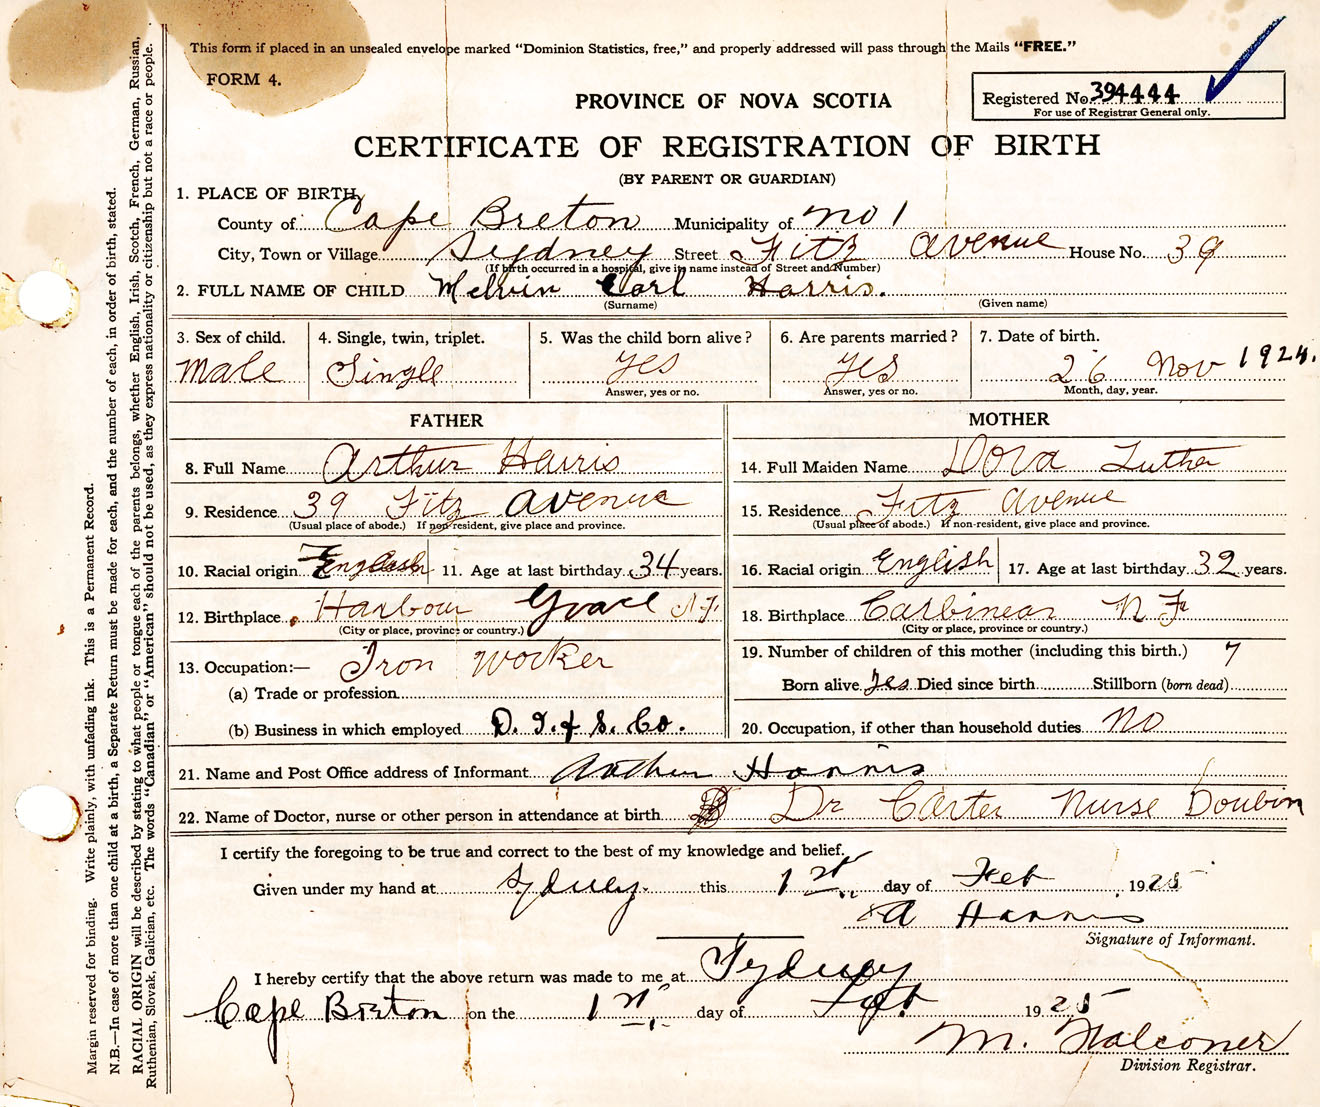 This form if placed in an unsealed envelope marked "Dominion Statistics, free," and properly addressed will pass through the Mails "FREE."
FORM 4.
PROVINCE OF NOVA SCOTIA
Registered No. 394444
For use of Registrar General only.
CERTIFICATE OF REGISTRATION OF BIRTH
(BY PARENT OR GUARDIAN)
1. PLACE OF BIRTH
County of Cape Breton Municipality of No 1
City, Town or Village Sydney Street Fitz Avenue House No. 39
(If birth occurred in a hospital, give its name instead of Street and Number)
2. FULL NAME OF CHILD Melvin Carl Harris.
(Surname) (Given name)
3. Sex of child. 4. Single, twin, triplet. 5. Was the child born alive? 6. Are parents married? 7. Date of birth.
Male Single Yes Yes 26 Nov 1924.
Answer, yes or no. Answer, yes or no. Month, day, year.
FATHER MOTHER
8. Full Name Arthur Harris 14. Full Maiden Name Dora Luther
9. Residence 39 Fitz Avenue 15. Residence Fitz Avenue
(Usual place of abode.) If non-resident, give place and province. (Usual place of abode.) If non-resident, give place and province.
10. Racial origin English 11. Age at last birthday 34 years. 16. Racial origin English 17. Age at last birthday 32 years.
12. Birthplace Harbour Grace N.F. 18. Birthplace Carbinear N F
(City or place, province or country.) (City or place, province or country.)
13. Occupation:— Iron Worker 19. Number of children of this mother (including this birth.) 7
(a) Trade or profession Born alive Yes Died since birth Stillborn (born dead)
(b) Business in which employed D. I. & S. Co. 20. Occupation, if other than household duties No
21. Name and Post Office address of Informant Arthur Harris
22. Name of Doctor, nurse or other person in attendance at birth Dr Carter Nurse Doubin
I certify the foregoing to be true and correct to the best of my knowledge and belief.
Given under my hand at Sydney. this 1st day of Feb 1925
A Harris
Signature of Informant.
I hereby certify that the above return was made to me at Sydney
Cape Breton on the 1st day of Feb. 1925
M. Falconer
Division Registrar.
Margin reserved for binding. Write plainly, with unfading ink. This is a Permanent Record.
N.B.—In case of more than one child at a birth, a Separate Return must be made for each, and the number of each, in order of birth, stated.
RACIAL ORIGIN will be described by stating to what people or tongue each of the parents belongs, whether English, Irish, Scotch, French, German, Russian,
Ruthenian, Slovak, Galician, etc. The words "Canadian" or "American" should not be used, as they express nationality or citizenship but not a race or people.